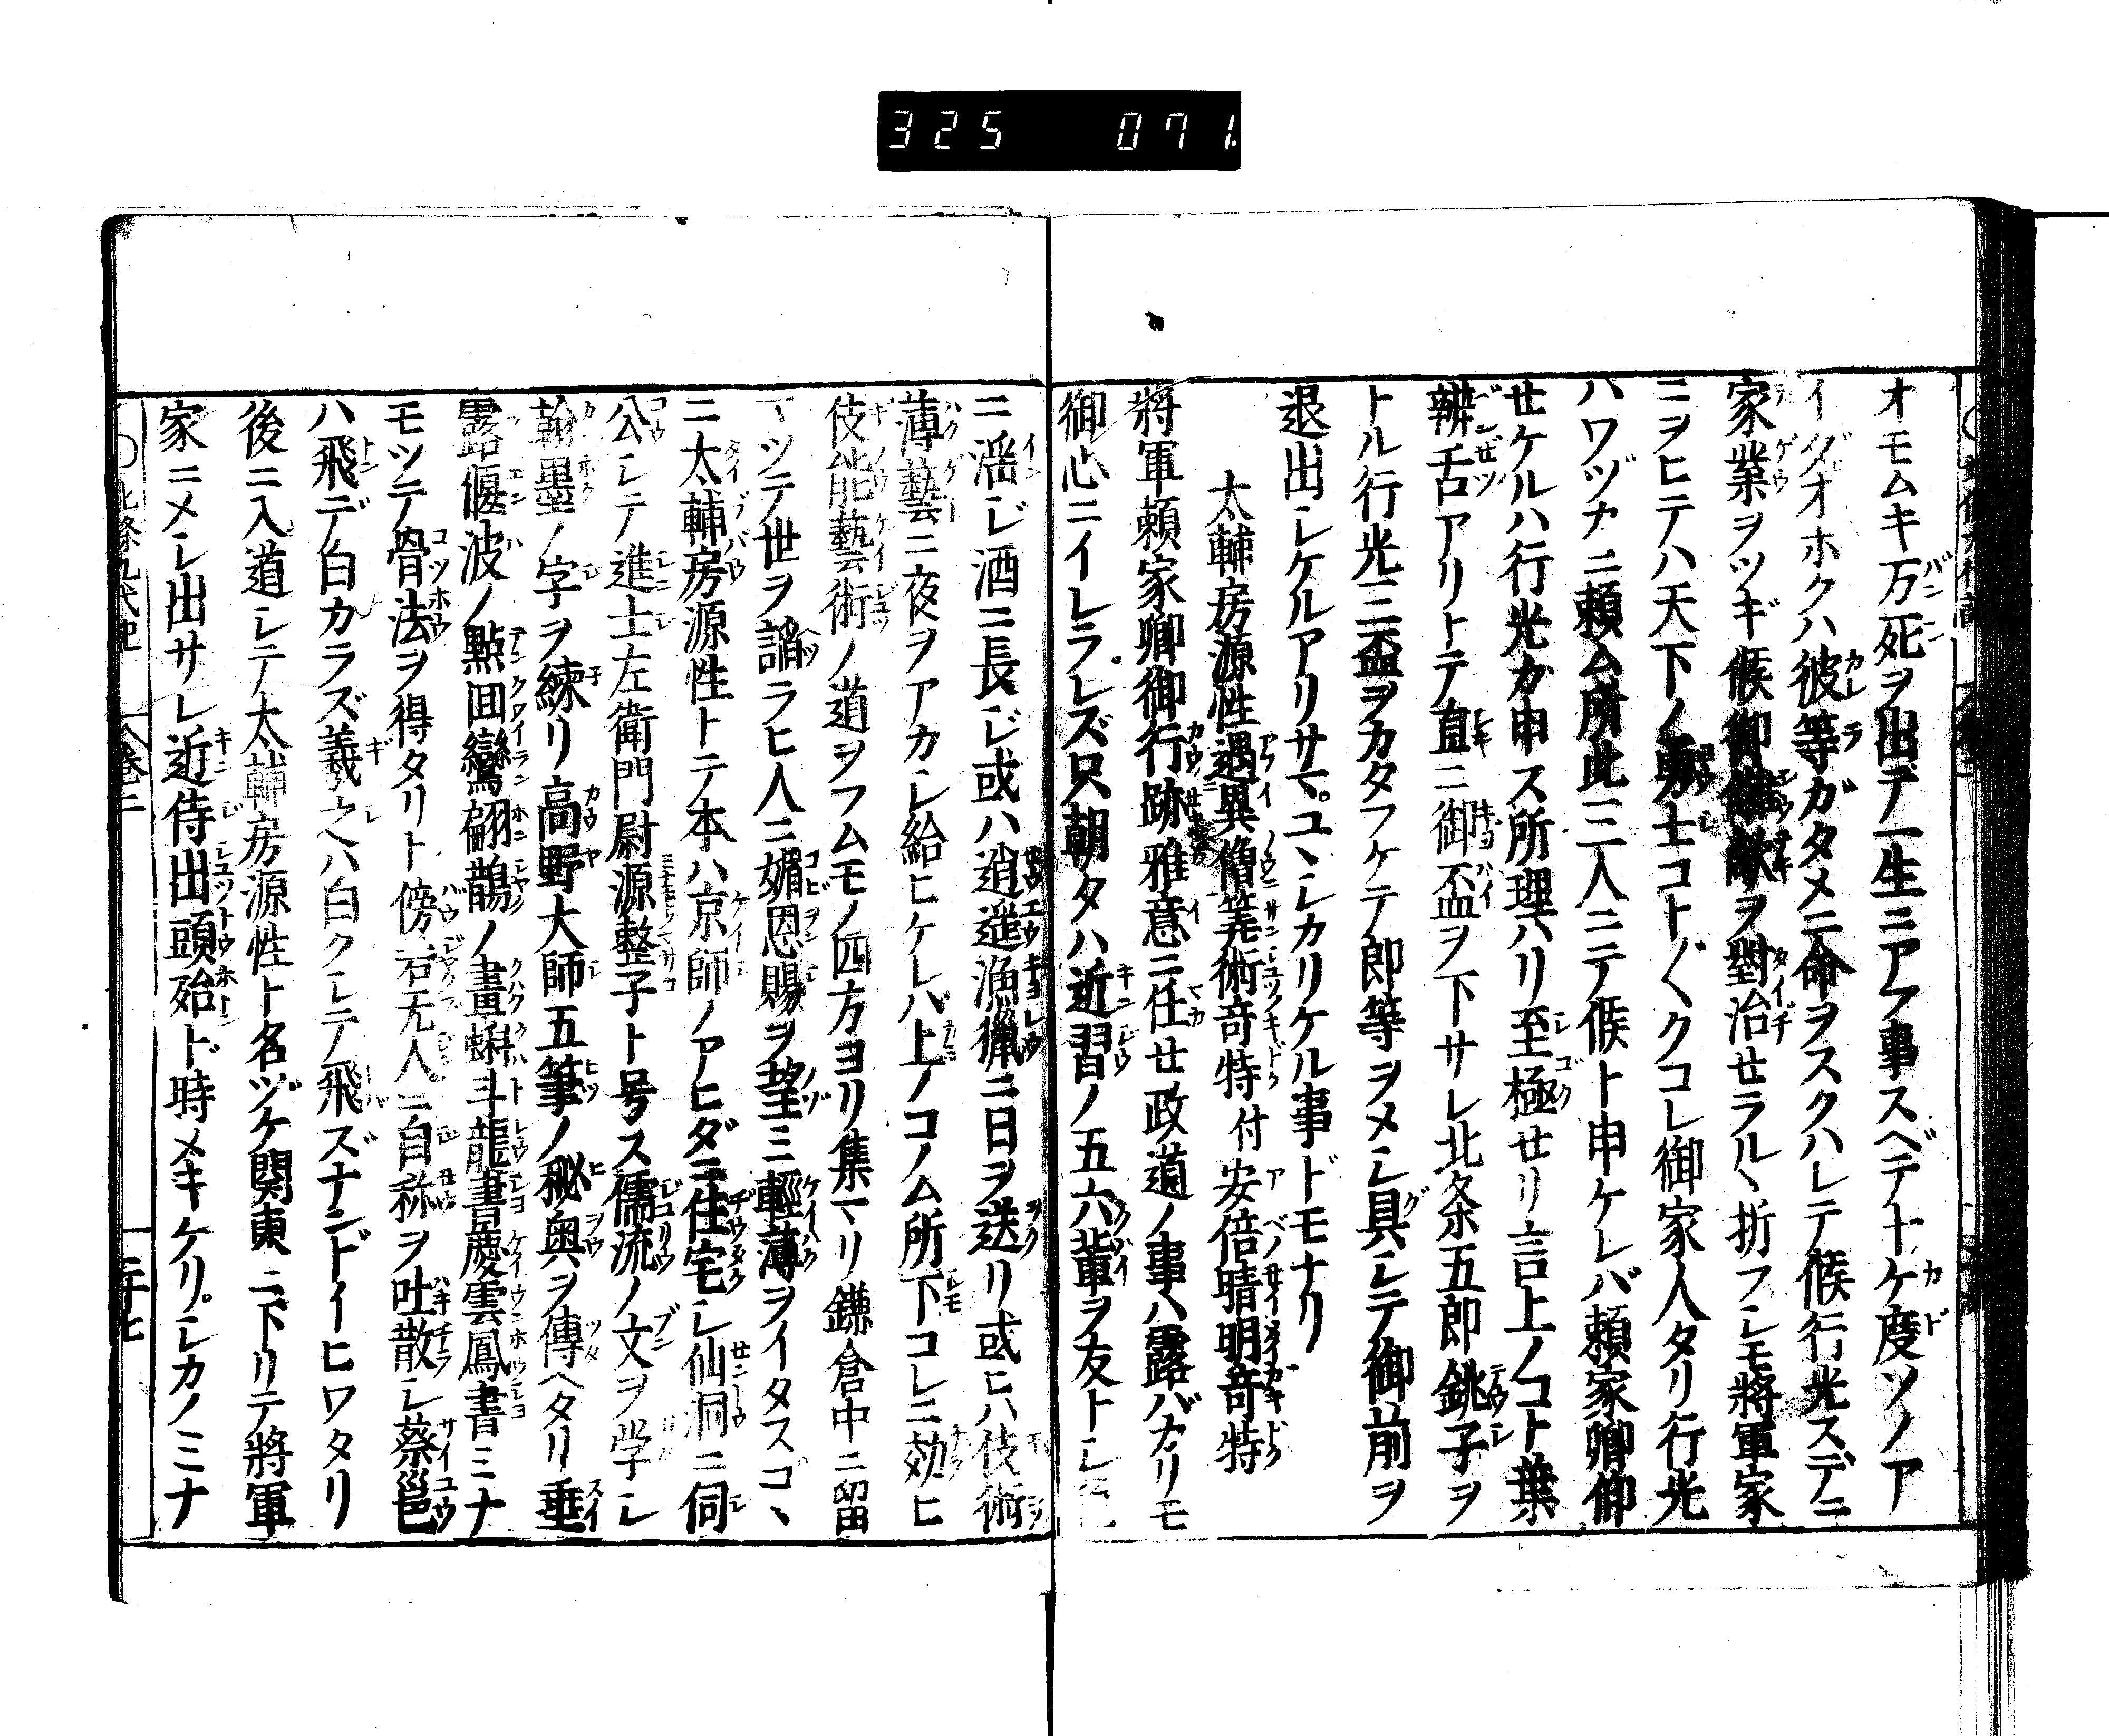 325 071.
オモムキ万死ヲ出デ一生ニアフ事スベテ十ケ度ソノア
イダオホクハ彼等ガタメニ命ヲスクハレテ候行光スデニ
家業ヲツギ候御怨敵ヲ對治セラルヽ折フシモ將軍家
ニヲヒテハ天下ノ勇士コト〲クコレ御家人タリ行光
ハワヅカニ頼ム所此三人ニテ候ト申ケレバ頼家卿仰
せケルハ行光カ申ス所理ハリ至極せリ言上ノコト葉
辨舌アリトテ直ニ御盃ヲ下サレ北条五郎銚子ヲ
トル行光三盃ヲカタフケテ郎等ヲメシ具シテ御前ヲ
退出シケルアリサマユヽシカリケル事ドモナリ
太輔房源性遇異僧筭術竒特付安倍晴明竒特
將軍頼家卿御行跡雅意ニ任せ政道ノ事ハ露バカリモ
御心ニイレラレズ只朝夕ハ近習ノ五六輩ヲ友トシ
ニ滛シ酒ニ長ジ或ハ逍遥漁獵ニ日ヲ送リ或ヒハ伎術
薄藝ニ夜ヲアカシ給ヒケレバ上ノコノム所下コレニ効ヒ
伎能藝術ノ道ヲフムモノ四方ヨリ集マリ鎌倉中ニ留
マツテ世ヲ謟ラヒ人ニ媚恩賜ヲ望ミ輕薄ヲイタスコヽ
ニ太輔房源性トテ本ハ京師ノアヒダニ住宅シ仙洞ニ伺
公シテ進士左衛門尉源整子ト号ス儒流ノ文ヲ学シ
翰墨ノ字ヲ練リ高野大師五筆ノ秘奥ヲ傳ヘタリ垂
露偃波ノ點囬鸞翩鵲ノ畫蝌斗龍書慶雲鳳書ミナ
モツテ骨法ヲ得タリト傍若无人ニ自称ヲ吐散シ蔡邕
ハ飛デ白カラズ羲之ハ白クシテ飛ズナンドイヒワタリ
後ニ入道シテ太輔房源性ト名ヅケ関東ニ下リテ將軍
家ニメシ出サレ近侍出頭殆ド時メキケリシカノミナ
○北條九代記 巻二 二十七